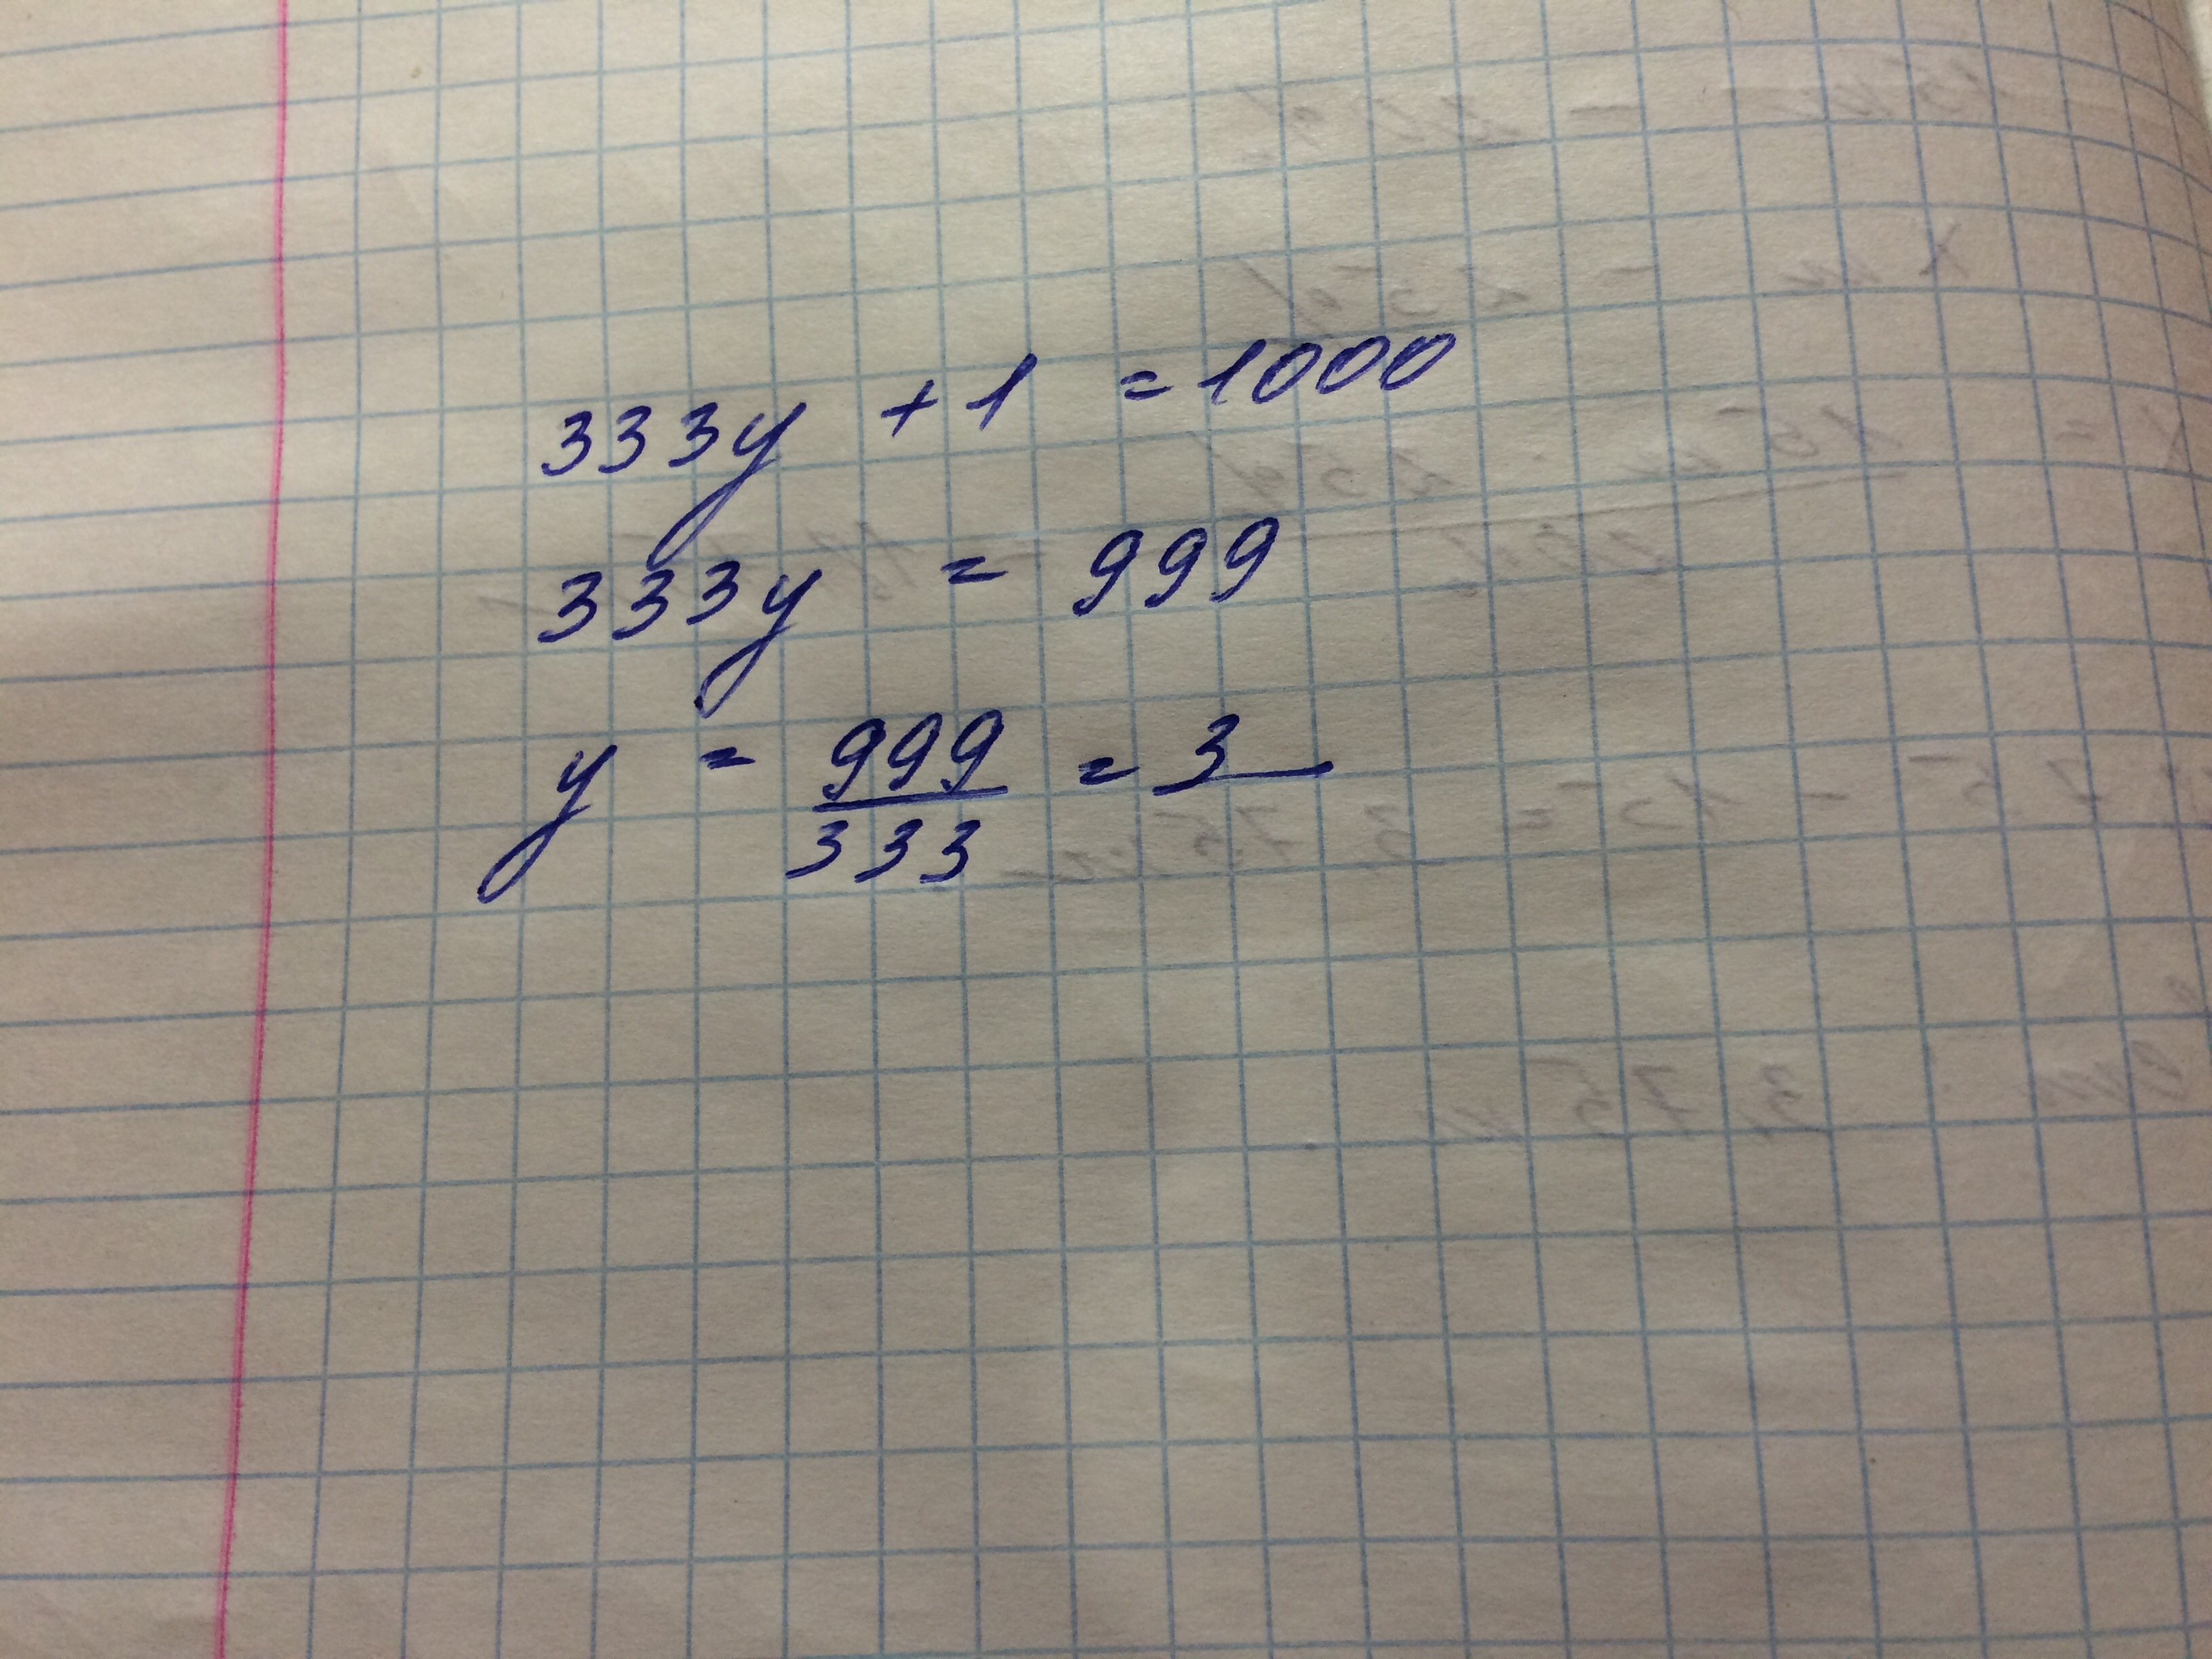 333y + 1 = 1000
333y = 999
y = 999/333 = 3